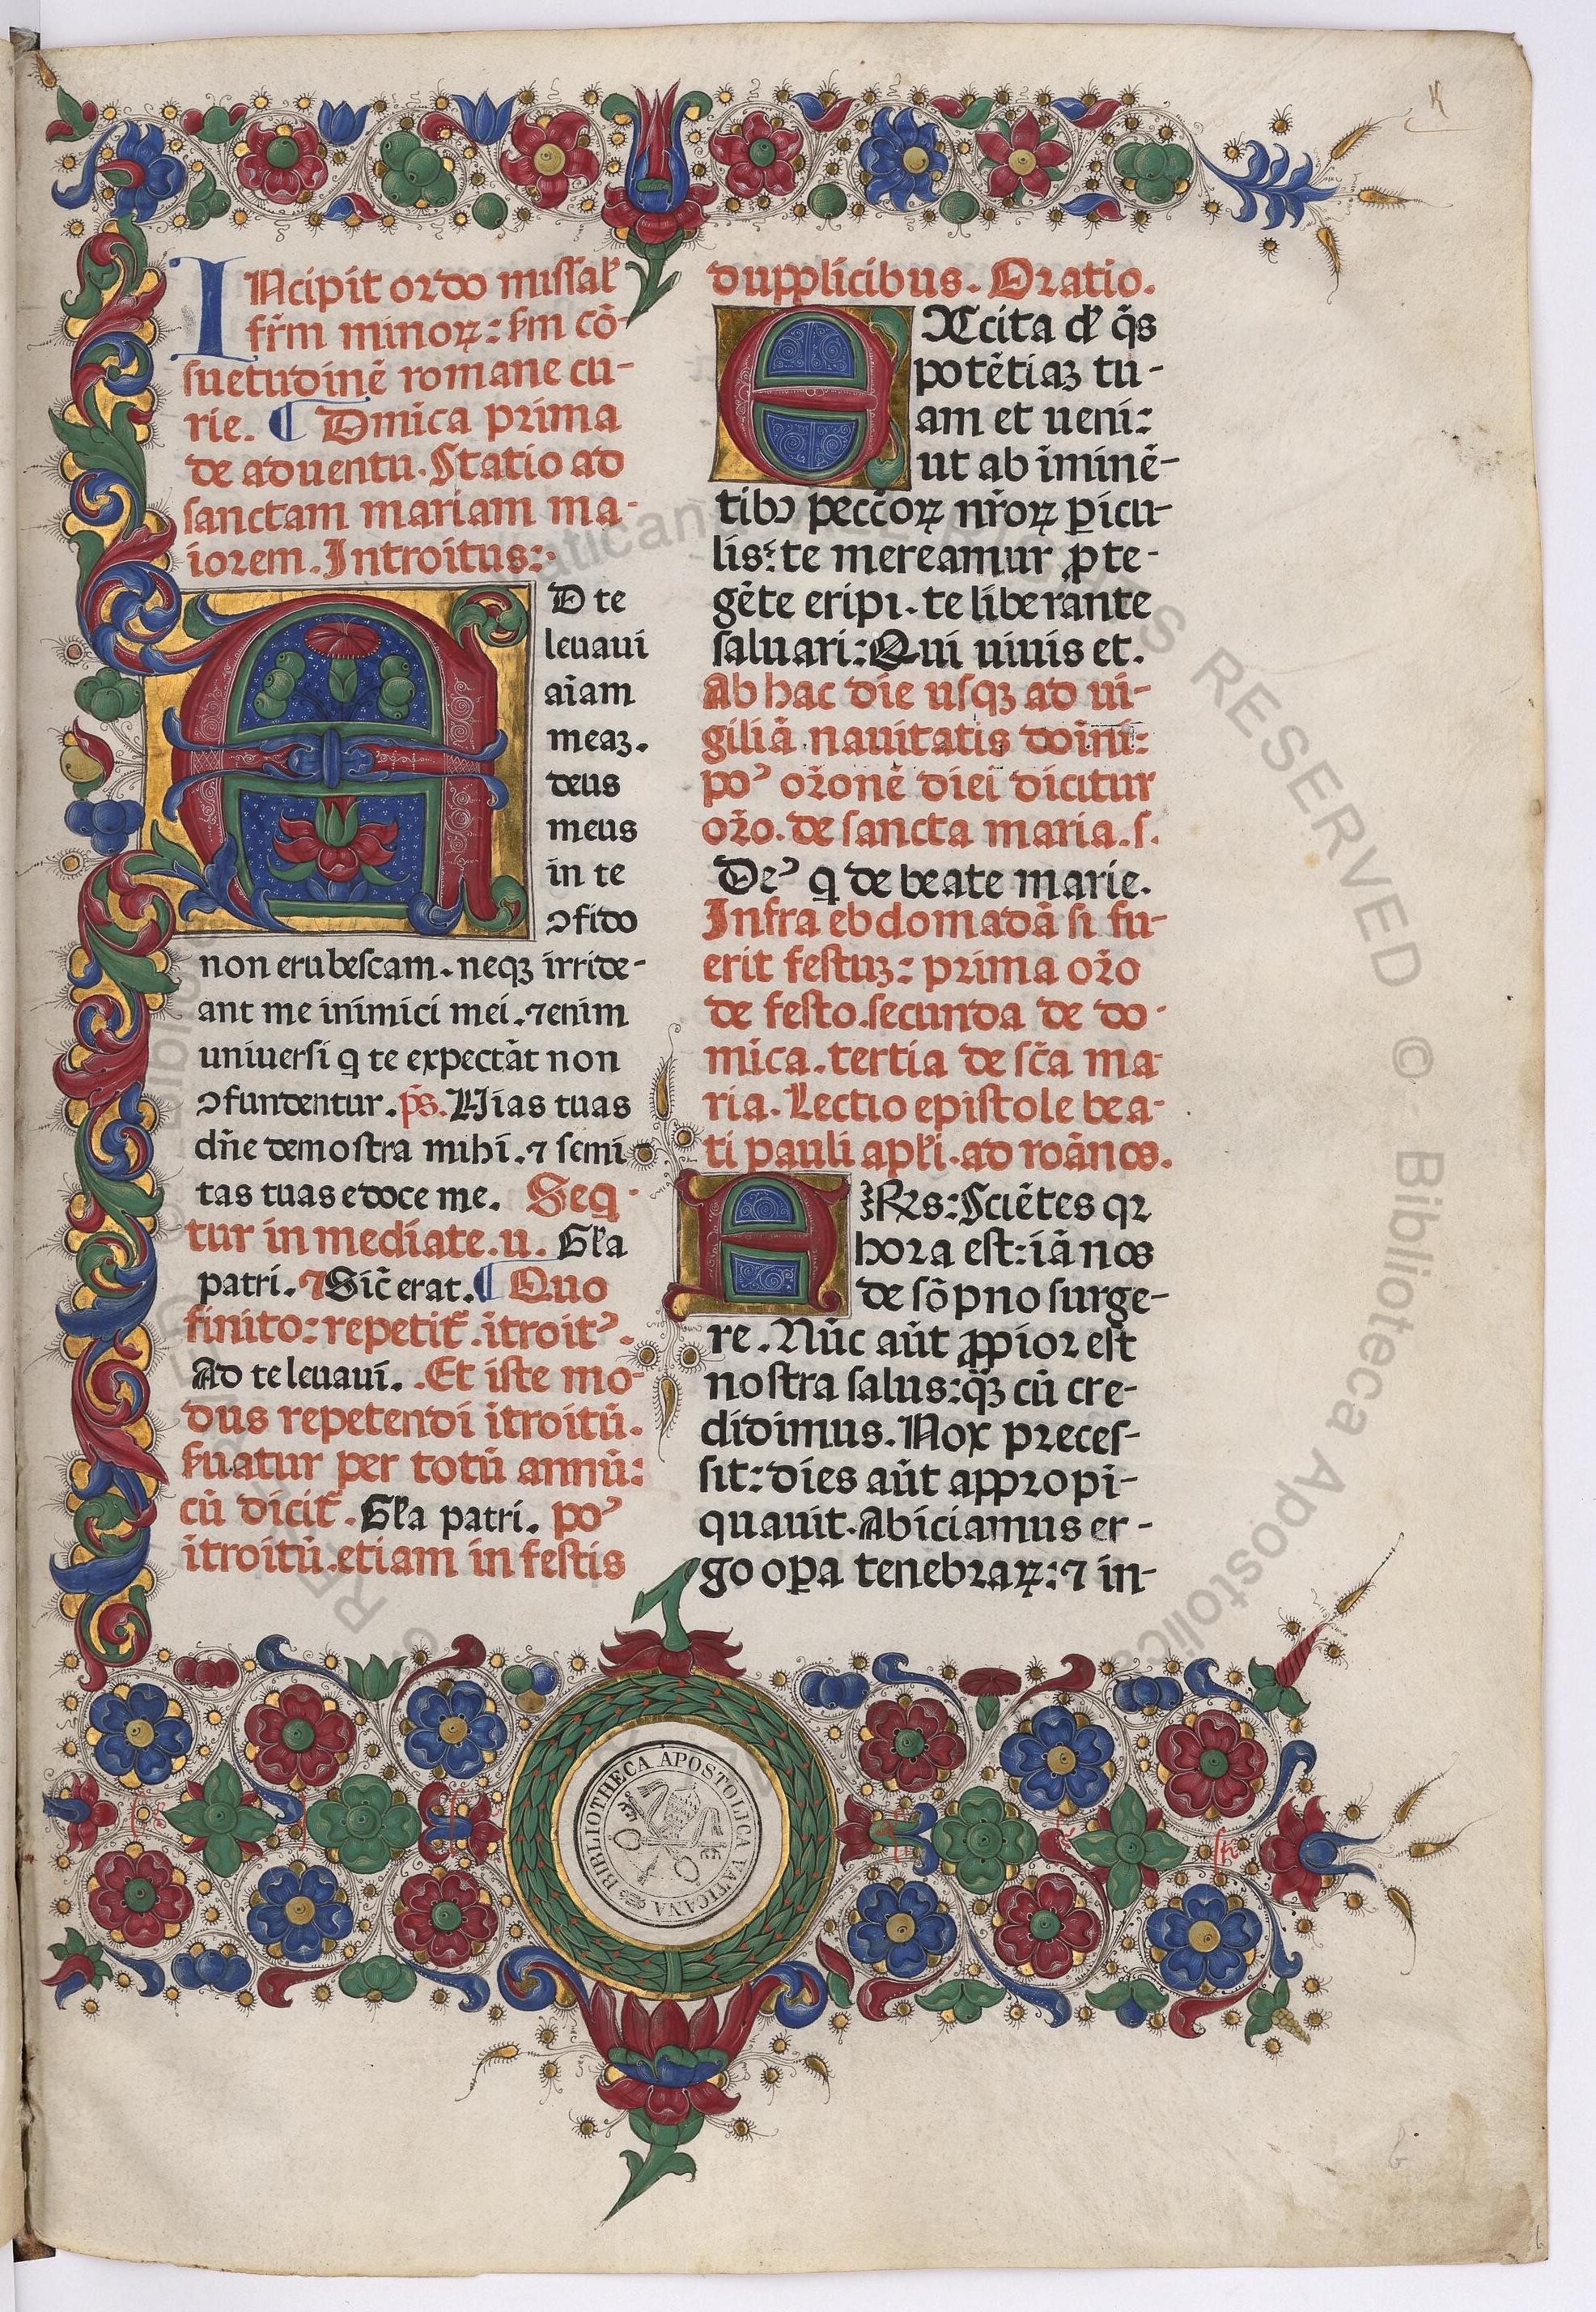 INcipit ordo missal̕
fr̄m minorꝝ: ẜm cō-
suetudinē romane cu-
rie. ¶ Dmica prima
de aduentu. Statio ad
sanctam mariam ma-
iorem. Introitus:
AD te
leuaui
aīam
meaꝫ.
deus
meus
in te
ꝯfido
non erubescam. neqꝫ irride-
ant me inimici mei. ⁊enim
uniuersi q te expectāt non
ꝯfundentur. p̄s. Uias tuas
dn̄e demostra mihi. ⁊ semi
tas tuas edoce me. Seq̄
tur inmediate. u. Gl̄a
patri. ⁊ Sic̄ erat. ¶ Quo
finito: repetit̄. ītroitꝰ.
Ad te leuaui. Et iste mo-
dus repetendi ītroitū.
ẜuatur per totū annū:
cū dicit̄. Gl̄a patri. poꝰ
ītroitū. etiam in festis
dupplicibus. Oratio.
EXcita dn̄e q̄s
potētiaꝫ tu-
am et ueni:
ut ab īminē-
tibꝫ pecc̄oꝝ nr̄oꝝ ꝑicu-
lis: te mereamur ꝓte-
gēte eripi. te liberante
saluari: Qui uiuis et.
Ab hac die usqꝫ ad ui-
giliā nauitatis dōini:
poꝰ or̄onē diei dicitur
or̄o. de sancta maria. s.
Deꝰ q de beate marie.
Infra ebdomadā si fu-
erit festuꝫ: prima or̄o
de festo. secunda de do-
mica. tertia de sc̄a ma-
ria. Lectio epistole bea-
ti pauli apl̄i. ad roānos.
FRr̄s: Sciētes qꝛ
hora est: iā nos
de sōpno surge-
re. Nūc aūt ꝓpior est
nostra salus: qꝫ cū cre-
didimus. Nox preces-
sit: dies aūt appropi-
quauit. Abiciamus er-
go oꝑa tenebraꝝ: ⁊ in-
BIBLIOTHECA APOSTOLICA VATICANA
RESERVED © Biblioteca Apostolica